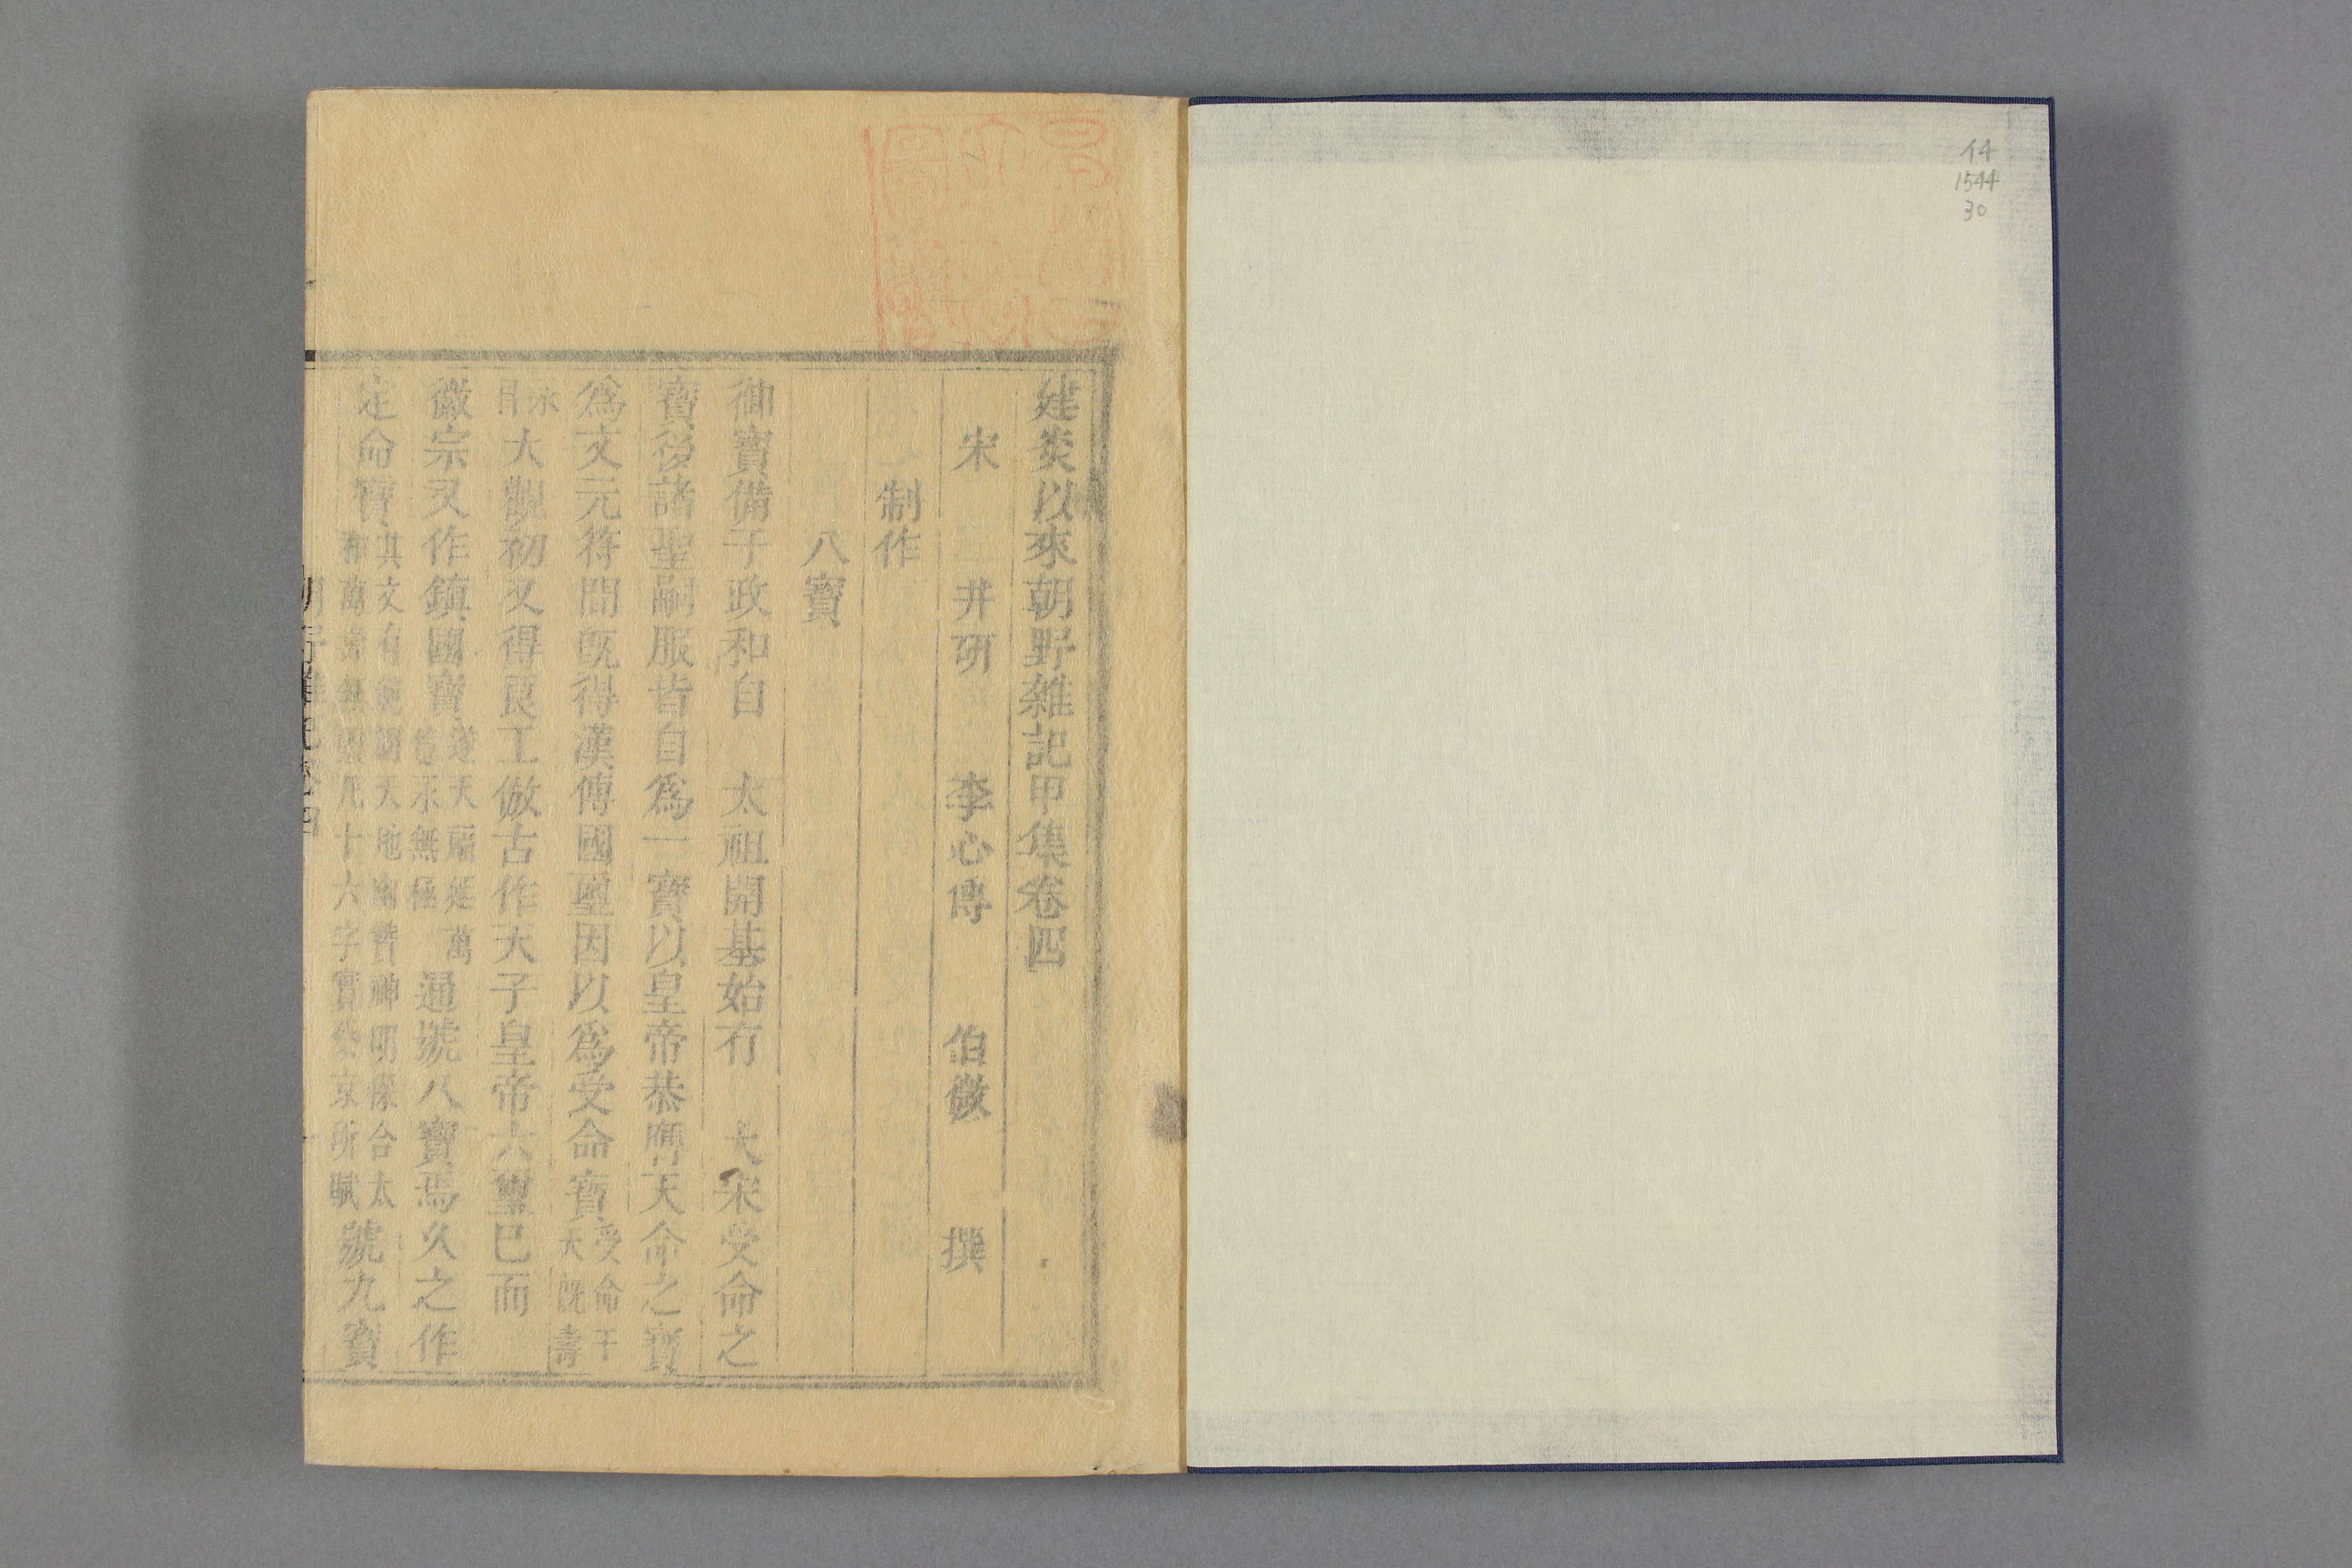 建炎以來朝野雜記甲集卷四
宋 井研 李心傳 伯微 撰
制作
八寶
御寶備于政和自 太祖開基始有 大宋受命之
寶後諸聖嗣服皆自爲一寶以皇帝恭膺天命之寶
爲文元符間旣得漢傳國璽因以爲受命寶受命于天旣壽
永昌大觀初又得良工倣古作天子皇帝六璽巳而
徽宗又作鎮國寶 天福延萬億永無極通號八寶焉久之作
定命寶其文有範圍天地幽贊神明保合太和萬壽無疆凡十六字寶蔡京所賦號九寶
14
1544
30